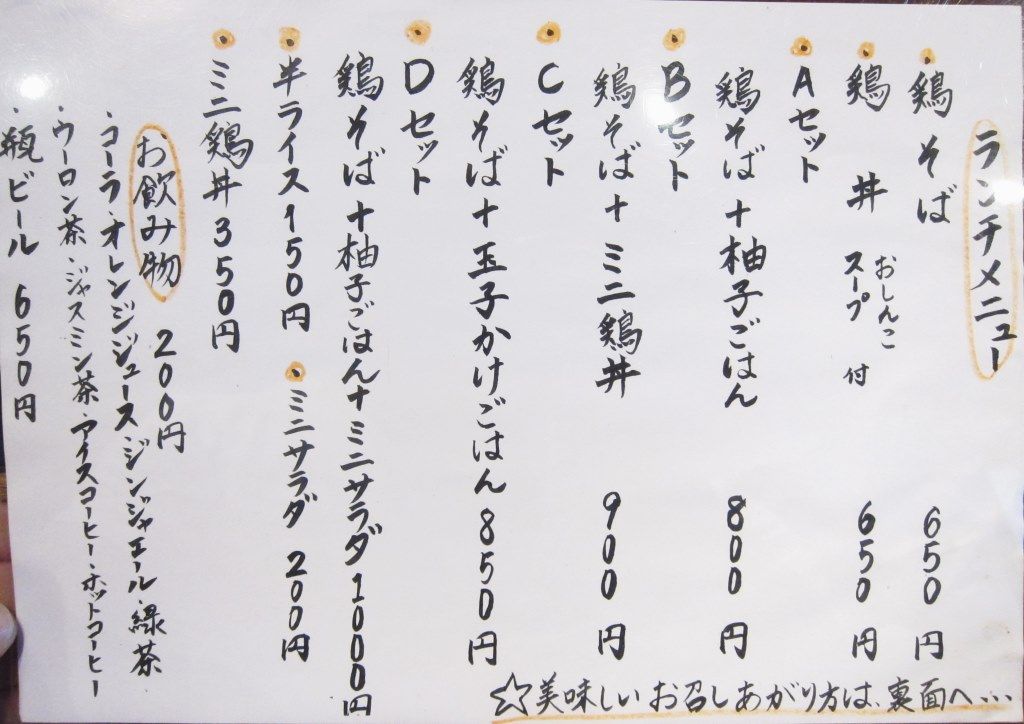 ランチメニュー
鶏そば 650円
鶏丼 おしんこ スープ 付 650円
Aセット
鶏そば+柚子ごはん 800円
Bセット
鶏そば+ミニ鶏丼 900円
Cセット
鶏そば+玉子かけごはん 850円
Dセット
鶏そば+柚子ごはん+ミニサラダ 1000円
半ライス150円 ミニサラダ 200円
ミニ鶏丼350円
お飲み物 200円
・コーラ・オレンジジュース・ジンジャエール・緑茶
・ウーロン茶・ジャスミン茶・アイスコーヒー・ホットコーヒー
・瓶ビール 650円
☆美味しいお召しあがり方は、裏面へ...